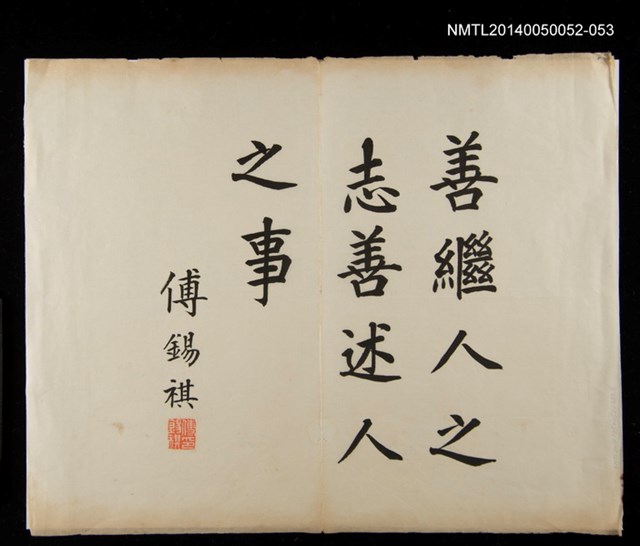 NMTL20140050052-053
善繼人之
志善述人
之事
傅錫祺